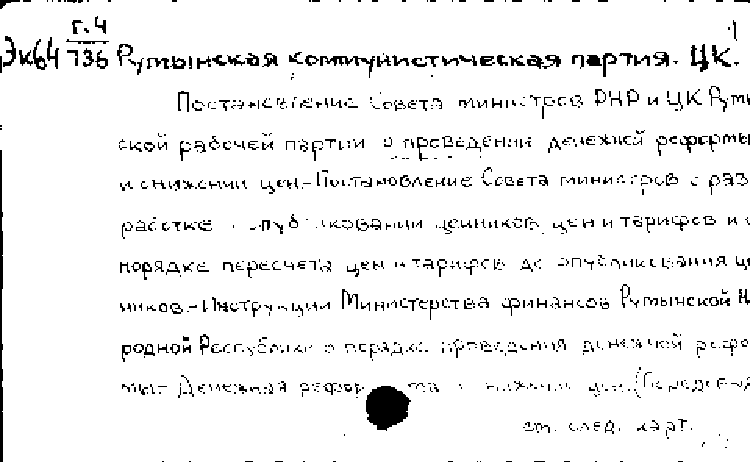 Эк64 Г.4/736 Румынская коммунистическая партия. ЦК.
Постановление Совета министров РНР и ЦК Румын
ской рабочей партии о проведении денежной реформы
и снижении цен.-Постановление Совета министров о раз
работке и опубликовании ценников цен и тарифов и о
порядке пересчета цен и тарифов до опубликования це
ников.-Инструкции Министерства финансов Румынской На
родной Республики о порядке проведения денежной рефор
мы.- Денежная реформа и снижение цен.(Передовая
см. след. карт.